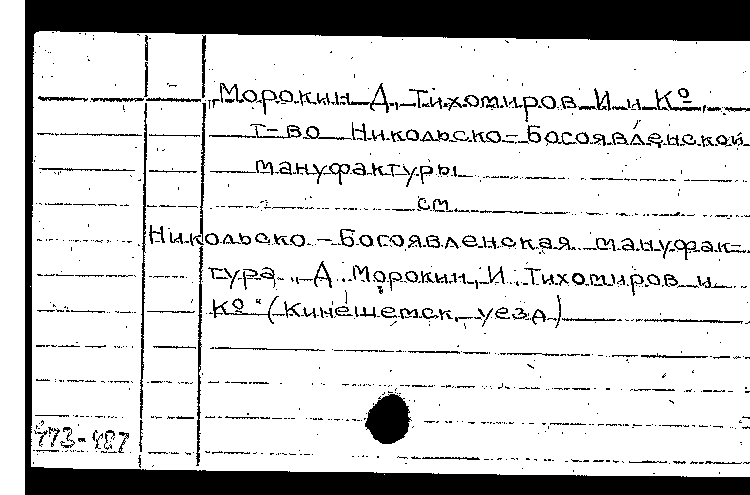 „Морокин Д, Тихомиров И и Кº,
т-во Никольско-Богоявленской
мануфактуры
см
Никольско-Богоявленская мануфак-
тура „Д. Морокин, И. Тихомиров и
Кº“ (Кинешемск. уезд)
473-487